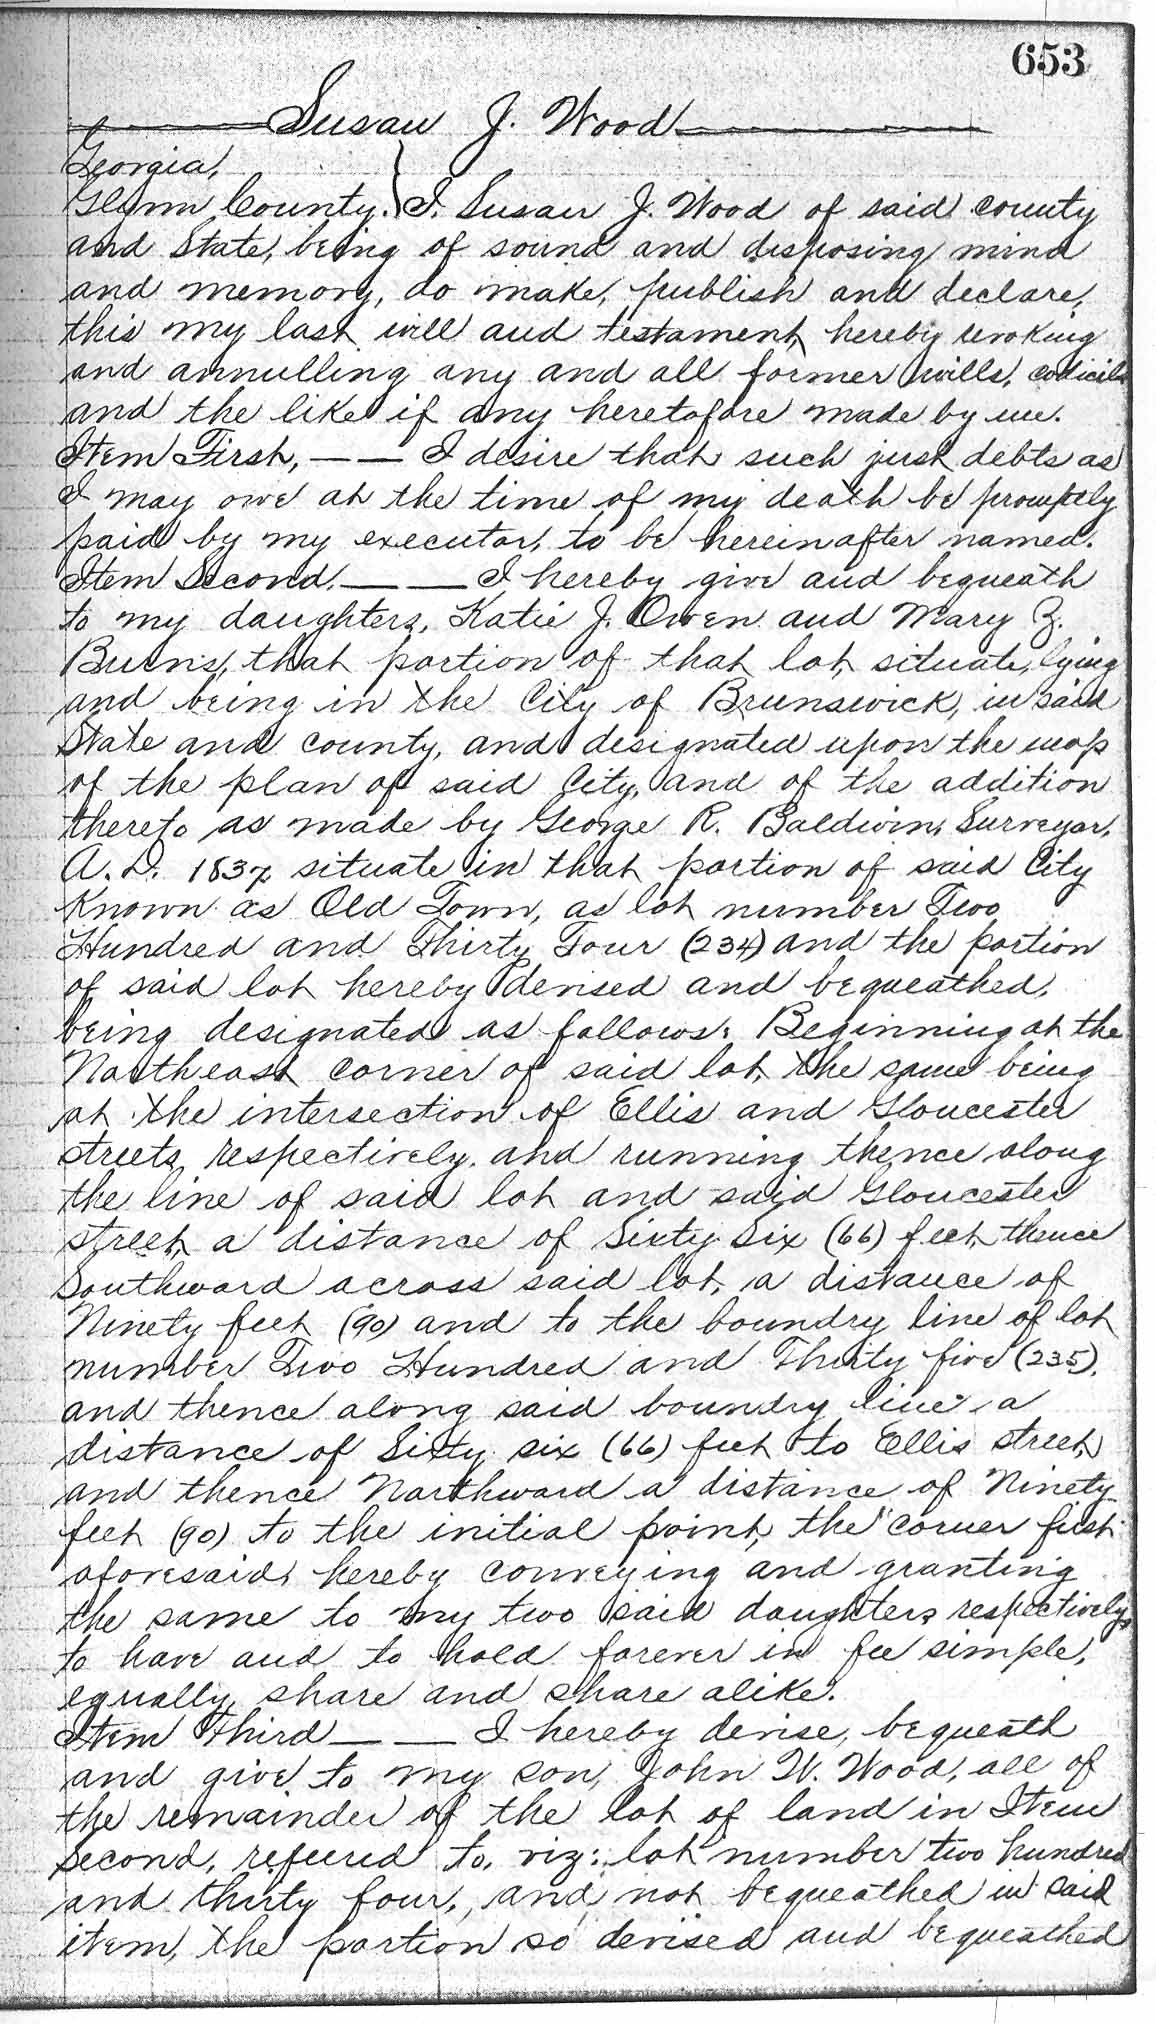 653
Susan J. Wood
Georgia,
Glynn County. } I, Susan J. Wood of said county
and State, being of sound and disposing mind
and memory, do make, publish and declare,
this my last will and testament, hereby revoking
and annulling any and all former wills, codicils
and the like if any heretofore made by me.
Item First, — — I desire that such just debts as
I may owe at the time of my death be promptly
paid by my executor, to be hereinafter named.
Item Second. — — I hereby give and bequeath
to my daughters, Katie J. Owen and Mary Z.
Burns, that portion of that lot, situate, lying
and being in the City of Brunswick, in said
State and county, and designated upon the map
of the plan of said City, and of the addition
thereto as made by George R. Baldwin, Surveyor,
A.D. 1837 situate in that portion of said City
Known as Old Town, as lot number Two
Hundred and Thirty Four (234) and the portion
of said lot hereby devised and bequeathed,
being designated as follows: Beginning at the
Northeast corner of said lot, the same being
at the intersection of Ellis and Gloucester
streets, respectively, and running thence along
the line of said lot and said Gloucester
street, a distance of Sixty Six (66) feet, thence
Southward across said lot, a distance of
Ninety feet (90) and to the boundry line of lot
number Two Hundred and Thirty five (235),
and thence along said boundry line, a
distance of Sixty six (66) feet to Ellis street,
and thence Northward a distance of Ninety
feet (90) to the initial point, the corner first
aforesaid, hereby conveying and granting
the same to my two said daughters respectively,
to have and to hold forever in fee simple,
equally, share and share alike.
Item Third — — I hereby devise, bequeath
and give to my son, John W. Wood, all of
the remainder of the lot of land in Item
Second, referred to, viz: lot number two hundred
and thirty four, and not bequeathed in said
item, the portion so devised and bequeathed